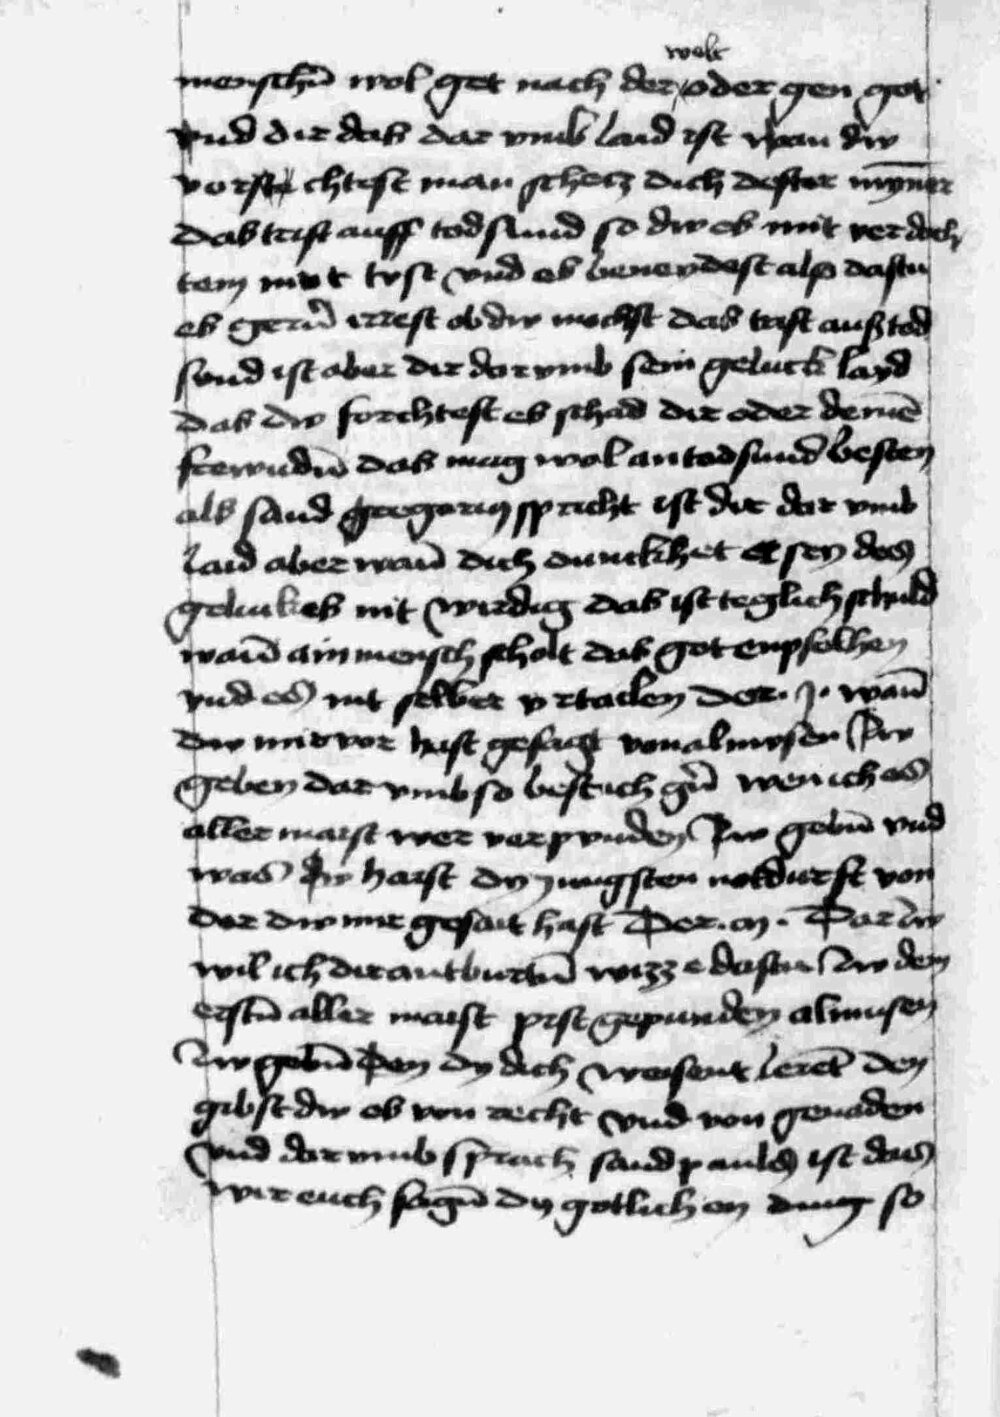 welt
menschn̄ wol get nach der oder gen got
vnd dir das dar vmb laid ist wan dw
vorst chtest man schecz dich dester mynner
das trift auff tod sund so dw es mit verdach
tem mut tust vnd es beneydest also dastu
es gern̄ irrest ob dw mochst das trift auff tod
sund ist aber dir dar vmb sein geluck layd
das dw forchtest es schad dir oder deinē
frewndn̄ das mag wol an todsund besten
als sand gregorius spricht ist dir dar vmb
laid aber wan̄ dich dunckhet er sey des
geluckes nit wirdig das ist teglich schuld
wan̄ ain mensch scholt das got enpfelhen
vnd es nit selber vrtailen Der · J · wan̄
dw mir vor hast gesagt von almusen zw
geben dar vmb so west ich gern̄ wem ich es
aller maist wer verpunden zw gebn̄ vnd
was zw haist dy jungsten notdurft von
der dw mir gesait hast Der · M · Dar zw
wil ich dir antburtn̄ wizze dastu zw dem
erstn̄ aller maist pist gepunden almusen
zw gebn̄ den dy dich weisent lerēt den
gibst dw es von recht vnd von genaden
vnd dar vmb sprach sand paulus ist das
wir euch sagn̄ dy gotlichen ding so